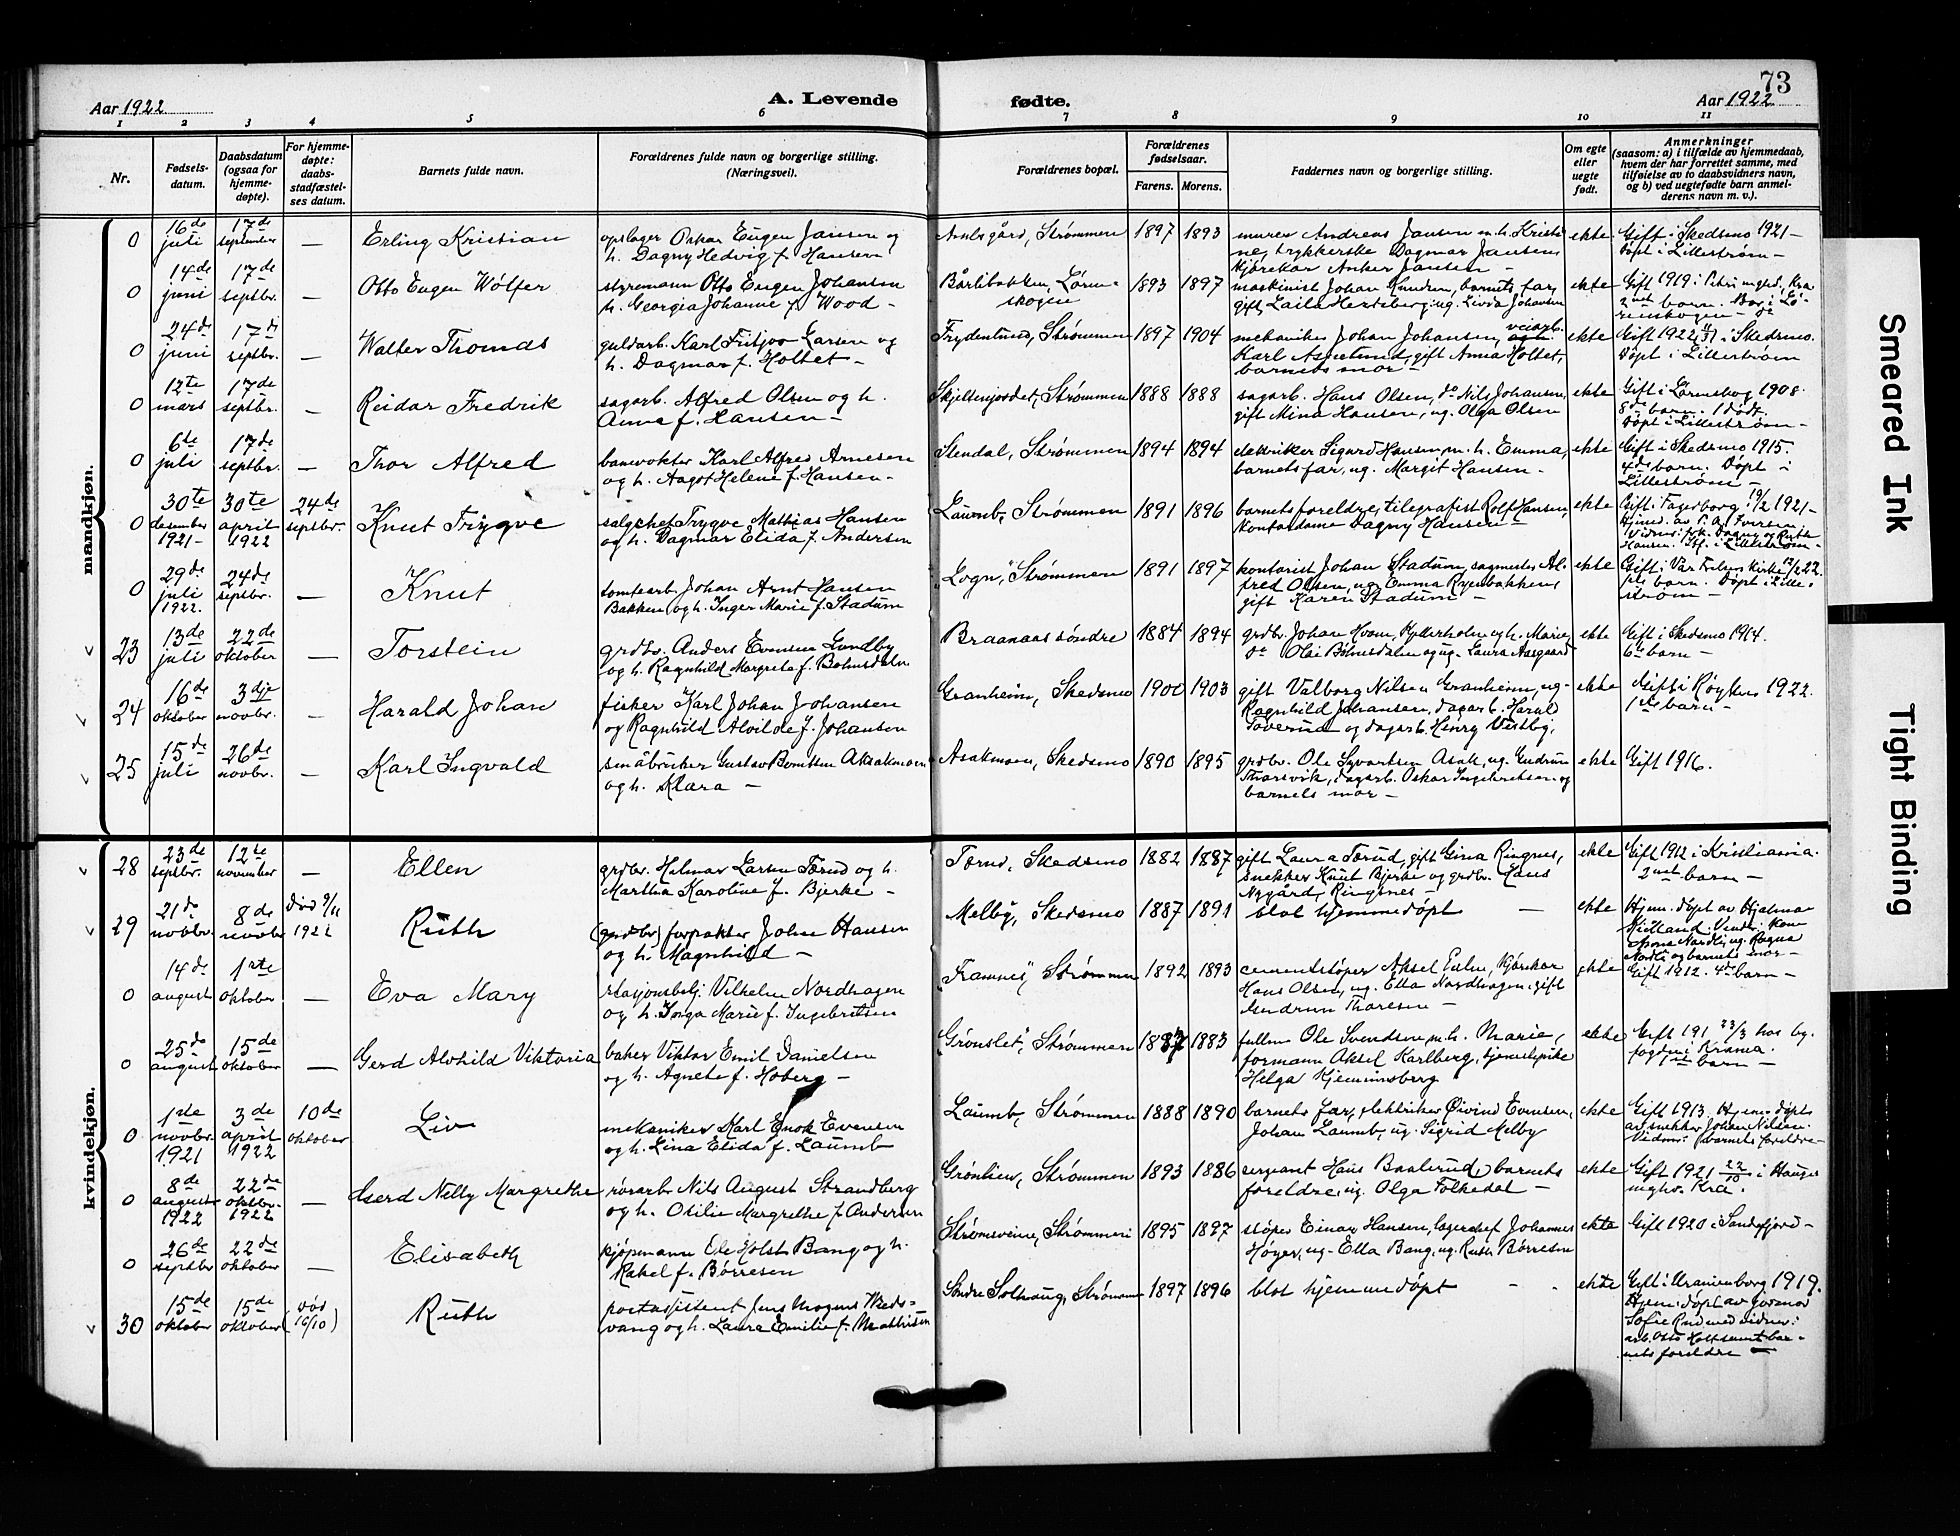 73
Aar 1922
A. Levende
fødte.
Aar 1922
1 2 3 4 5 6 7 8 9 10 11
Nr.
Fødsels-
datum.
Daabsdatum
(ogsaa for
hjemme-
døpte).
For hjemme-
døpte:
daabs-
stadfæstel-
ses datum.
Barnets fulde navn.
Forældrenes fulde navn og borgerlige stilling.
(Næringsvei).
Forældrenes bopæl.
Forældrenes
fødselsaar.
Farens. Morens.
Faddernes navn og borgerlige stilling.
Om egte
eller
uegte
født.
Anmerkninger
(saasom: a) i tilfælde av hjemmedaab,
hvem der har forrettet samme, med
tilføielse av to daabsvidners navn,
og b) ved uegtefødte barn anmel-
derens navn m. v.).
mandkjøn.
0
16de
juli
17de
september
—
Erling Kristian
opslager Oskar Eugen Jansen og
h. Dagny Hedvig f. Hansen
Strømmen
1897
1893
murer Andreas Jansen m. h. Kristi
ne, trykkerske Dagmar Jansen,
kjørekar Anker Jansen —
ekte
Gift i Skedsmo 1921 —
Døpt i Lillestrøm —
0
14de
juni
17de
septbr.
—
Otto Eugen Wölfer
styremann Otto Eugen Johansen
h. Georgia Johanne f. Wood —
Bårlibakken, Løren-
skogen
1893
1897
maskinist Johan Knudsen, barnets far,
gift Laila Herteberg, ug. Livia Johansen
ekte
Gift 1919 i
2net barn. Bor i Lø-
renskogen —
0
24de
juni
17de
septbr.
—
Walter Thomas
gulvarb. Karl Fritjov Larsen og
h. Dagmar f. Holtet —
Frydenlund, Strømmen
1897
1904
mekaniker Johan Johansen, veiarb.
Karl gift Anna Holtet,
barnets mor —
ekte
Gift 1922 i Skedsmo.
Døpt i Lillestrøm
0
12te
mars
17de
septbr.
—
Reidar Fredrik
sagarb. Alfred Olsen og h.
Anna f. Hansen —
Strømmen
1888
1888
sagarb. Hans Olsen, do Nils Johansen,
gift Mina Hansen, ug. Olga Olsen
ekte
Gift i Lørenskog 1908.
8de barn. 1 dødt.
Døpt i Lillestrøm —
0
6te
juli
17de
septbr.
—
Thor Alfred
banevokter Karl Alfred Arnesen
og h. Aagot Helene f. Hansen —
Stendal, Strømmen
1894
1894
elektriker Sigurd Hansen m. h. Emma,
barnets far, ug. Margit Hansen —
ekte
Gift i Skedsmo 1915.
4de barn. Døpt i
Lillestrøm —
0
30te
desember
1921 —
30te
april
1922
24de
septbr.
Knut Trygve
salgchef Trygve Mathias Hansen
og h. Dagmar Elida f. Andersen
Laumb, Strømmen
1891
1896
barnets foreldre, telegrafist Rolf Hansen,
kontordame Dagny Hansen —
ekte
Gift i Fagerborg 19/2 1921 —
Stf. i Lillestrøm —
0
29de
juli
1922.
24de
septbr.
—
Knut
tomtearb. Johan Arnt Hansen
Bakken og h. Inger Marie f. Stadum
"Logn", Strømmen
1891
1897
kontorist Johan Stadum, sagmester Al-
fred Olsen, ug. Emma Ryenbakken,
gift Karen Stadum —
ekte
Gift i Vår Frelsers kirke
1ste barn. Døpt i Lille-
strøm —
23
13de
juli
22de
oktober
—
Torstein
grdbr. Anders Evensen Lundby
og h. Ragnhild Margrete f. Bøhmsdalen
Braanaas søndre
1884
1894
grdbr. Johan Hvam, Hellerholm og h. Marie,
do Olai Bøhmsdalen og ug. Laura Aasgaard
ekte
Gift i Skedsmo 1914.
6te barn —
24
16de
oktober
3dje
novbr.
—
Harald Johan
fisker Karl Johan Johansen
og Ragnhild Alvilde f. Johansen
Granheim, Skedsmo
1900
1903
gift Valborg Nilsen Granheim, ug.
Ragnhild Johansen, dagarb. Harald
Toverud og dagarb. Henry Vestby.
ekte
Gift i Røyken 1922.
1ste barn —
25
15de
juli
26de
novbr.
—
Karl Ingvald
småbruker Gustav Berntsen Asakmoen
og h. Klara —
Asakmoen, Skedsmo
1890
1895
grdbr. Ole Syvertsen Asak, ug. Gudrun
Thorsvik, dagarb. Oskar Ingebretsen og
barnets mor —
ekte
Gift 1916.
kvindekjøn.
28
23de
septbr.
12te
november
—
Ellen
grdbr. Helmer Larsen Tærud og h.
Martha Karoline f. Bjerke —
Tærud, Skedsmo
1882
1887
gift Laura Tærud, gift Gina Ringnes,
snekker Knut Bjerke og grdbr. Hans
Nygård, Ringnes —
ekte
Gift 1912 i Kristiania.
2net barn —
29
21de
novbr.
8de
novbr.
død 9/11
1922
Ruth
(grdbr) forpakter John Hansen
og h. Magnhild —
Melby, Skedsmo
1887
1891
blot hjemmedøpt —
ekte
Hjem. døpt av Hjalmar
og barnets mor —
0
14de
august
1ste
oktober
—
Eva Mary
stasjonsbetj. Vilhelm Nordhagen
og h. Inga Marie f. Ingebretsen
"Framnes", Strømmen
1892
1893
cementstøper Aksel Holm, kjørekar
Hans Olsen, ug. Ella Nordhagen, gift
Gudrun Thoresen —
ekte
Gift 1912. 4de barn —
0
25de
august
15de
oktober
—
Gerd Alvhild Viktoria
baker Viktor Emil Danielsen
og h. Agnete f. Hoberg —
"Grønslet", Strømmen
1883
fullm. Ole Svendsen m. h. Marie,
formann Aksel Karlberg, tjenestepike
Helga Kjeminsberg
ekte
hos by-
fogden i Krania.
barn —
0
1ste
novbr.
1921
3de
april
1922
10de
oktober
Liv
mekaniker Karl Enok Evensen
og h. Lina Elida f. Laumb
Laumb, Strømmen
1888
1890
barnets far, elektriker Øivind Evensen,
Johan Laumb, ug. Sigrid Melby
ekte
Gift 1913. Hjem. døpt
av snekker Johan Nilsen.
Vidner: barnets foreldre —
0
8de
august
1922
22de
oktbr.
1922
—
Gerd Nelly Margrethe
rørarb. Nils August Strandberg
og h. Otilie Margrethe f. Andersen
Grønlien, Strømmen
1893
1886
sergeant Hans Baalerud, barnets
foreldre, ug. Olga Folkedal —
ekte
Gift 1921 22/10 i Hauges
mghv. Kra.
0
26de
septbr
22de
oktober
—
Elisabeth
kjøpmann Ole Holst Bang og h.
Rakel f. Børresen
Strømsveien, Strømmen
1895
1897
støper Einar Hansen, lagerchef Johannes
Høyer, ug. Ella Bang, ug. Ruth Børresen
ekte
Gift 1920 i Sandefjord —
30
15de
oktober
15de
oktober
(død
16/10)
Ruth
postassistent Jens Mogens Weds-
vang og h. Laura Emilie f. Mathisen
Søndre Solhaug, Strømmen
1897
1896
blot hjemmedøpt — -
ekte
Gift i Uranienborg 1919.
Hjem. døpt av jormor
Sofie Rud med vidner:
arb. Otto Holt samt bar-
nets foreldre —
Smeared Ink
Tight Binding